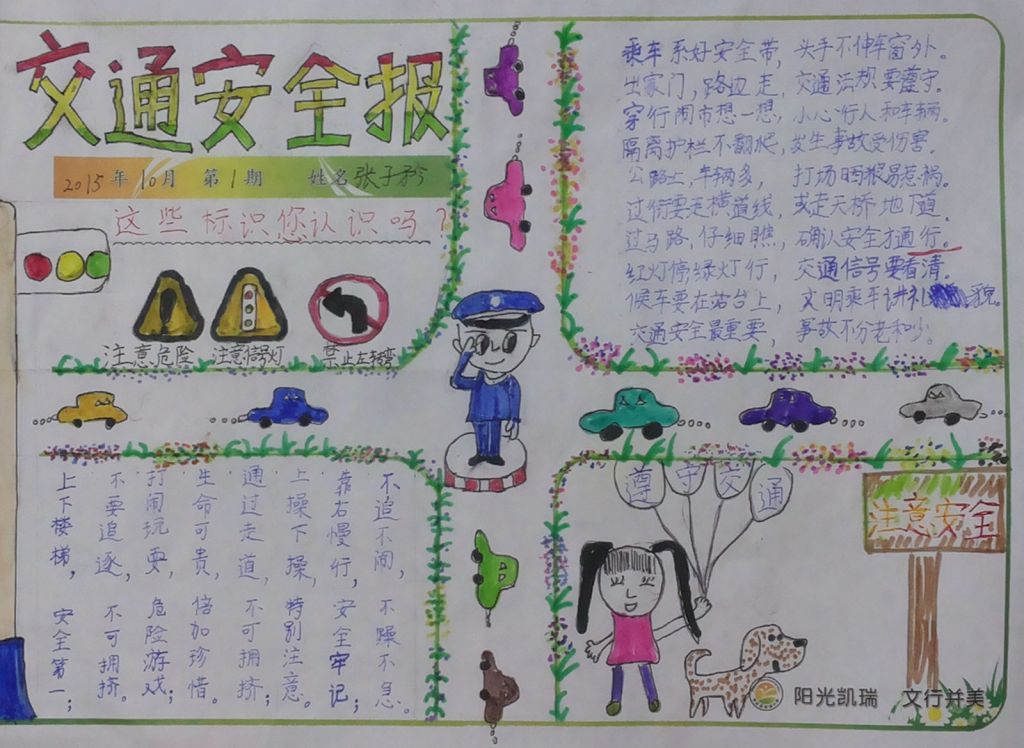 交通安全报
2015年10月 第1期 姓名张子矜
这些标识您认识吗?
注意危险
注意信号灯
禁止左转弯
乘车系好安全带,头手不伸车窗外。
出家门,路边走,交通法规要遵守。
穿行闹市想一想,小心行人和车辆。
隔离护栏不翻爬,发生事故受伤害。
公路上,车辆多,打场晒粮易惹祸。
过街要走横道线,或走天桥地下道。
过马路,仔细瞧,确认安全才通行。
红灯停绿灯行,交通信号要看清。
候车要在站台上,文明乘车讲礼貌。
交通安全最重要,事故不分老和少。
上下楼梯,安全第一;
不要追逐,不可拥挤。
打闹玩耍,危险游戏;
生命可贵,倍加珍惜。
通过走道,不可拥挤;
上操下操,特别注意。
靠右慢行,安全牢记;
不追不闹,不躁不急。
遵守交通
注意安全
阳光凯瑞 文行并美